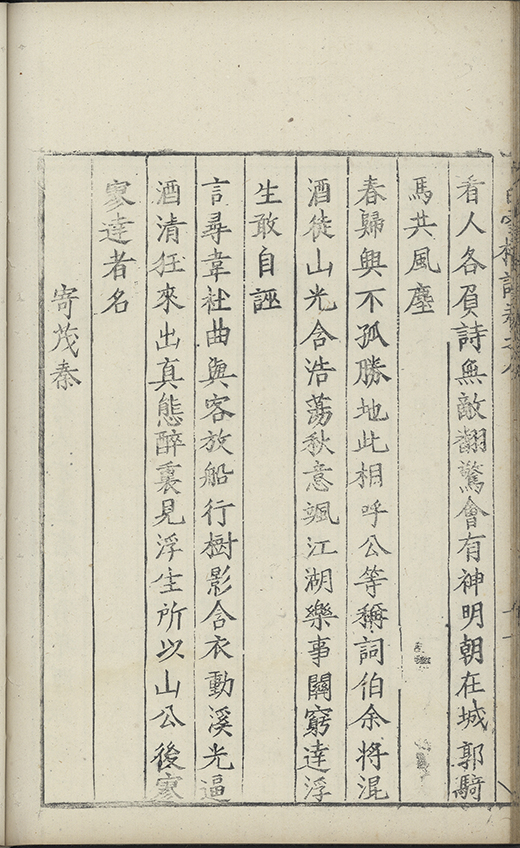 看人各負詩無敵翻驚會有神明朝在城郭騎
馬共風塵
春歸興不孤勝地此相呼公等稱詞伯余將混
酒徒山光含浩蕩秋意颯江湖樂事關窮達浮
生敢自誣
言尋韋杜曲與客放船行樹影含衣動溪光逼
酒清狂來出真態醉裏見浮生所以山公後寥
寥達者名
寄茂秦